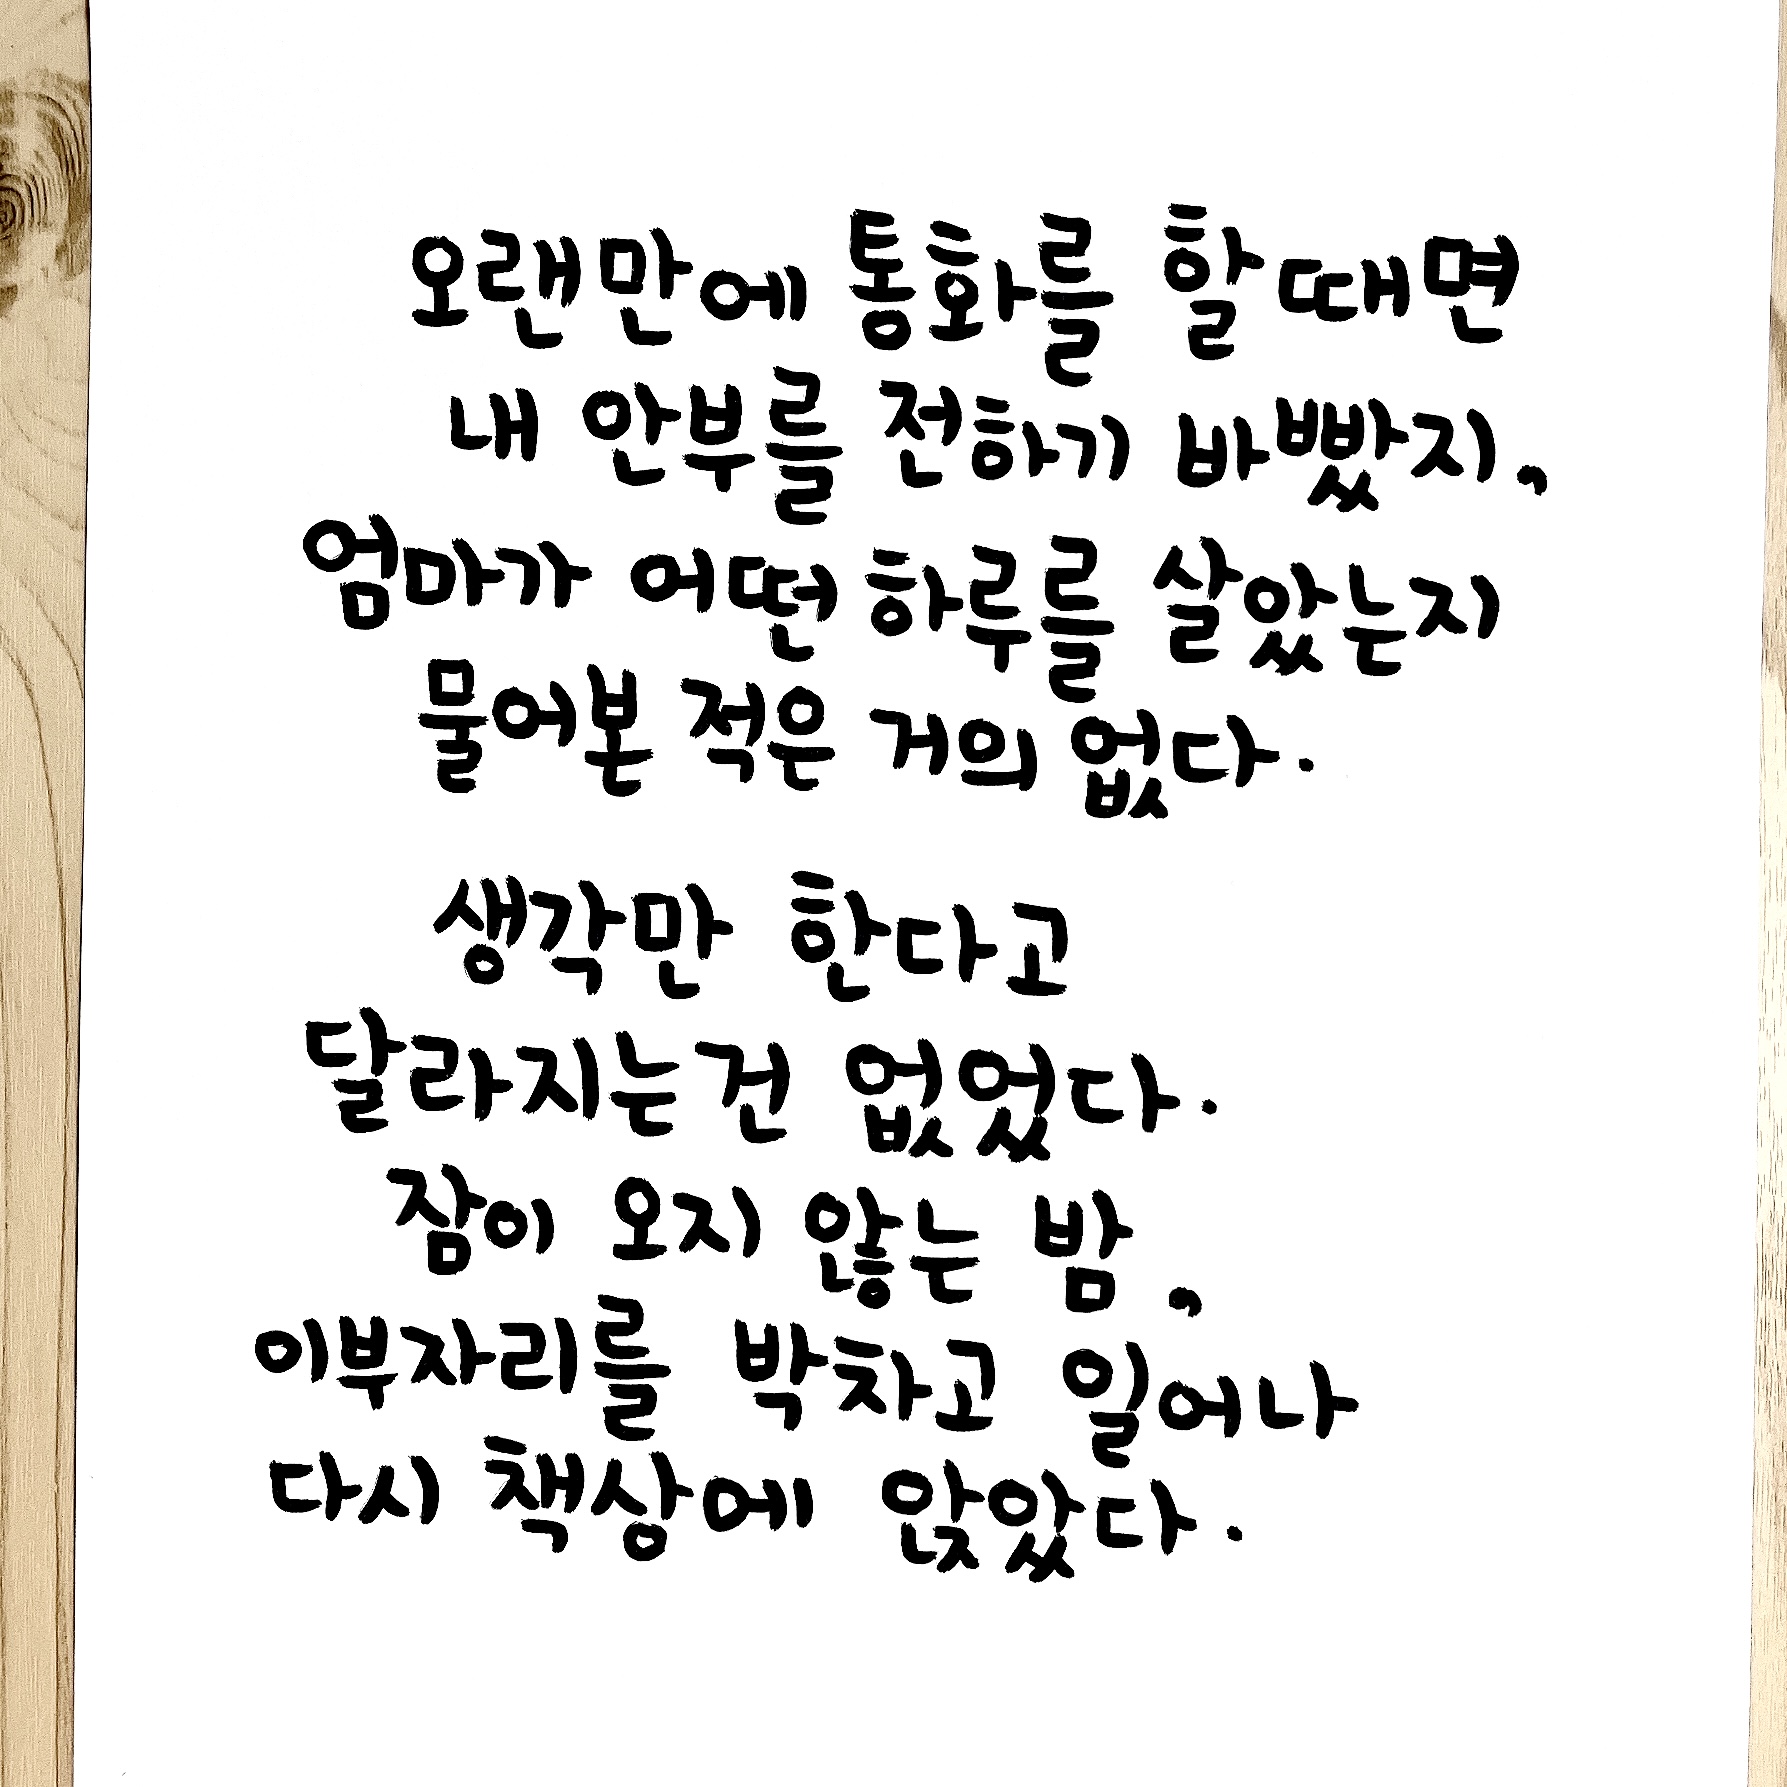 오랜만에 통화를 할때면
내 안부를 전하기 바빴지,
엄마가 어떤 하루를 살았는지
물어본 적은 거의 없다.
생각만 한다고
달라지는건 없었다.
잠이 오지 않는 밤,
이부자리를 박차고 일어나
다시 책상에 앉았다.